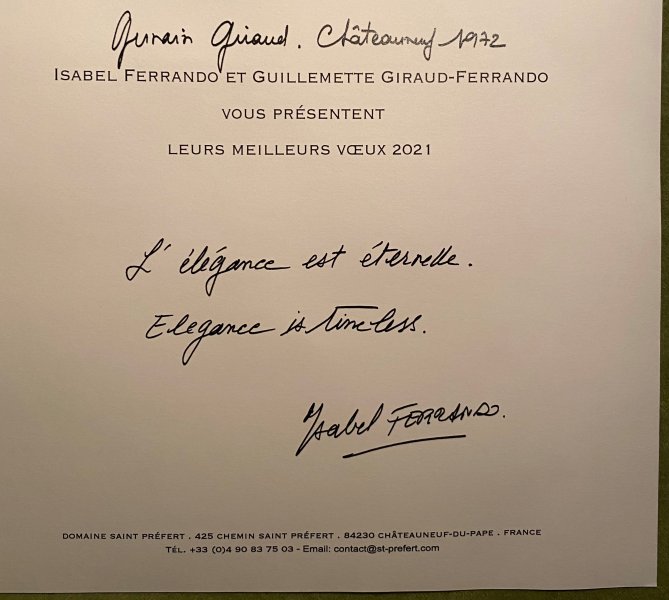 Giraud. Châteauneuf 1972
ISABEL FERRANDO ET GUILLEMETTE GIRAUD-FERRANDO
VOUS PRÉSENTENT
LEURS MEILLEURS VŒUX 2021
L'élégance est éternelle.
Elegance is timeless.
Isabel FERRANDO.
DOMAINE SAINT PRÉFERT . 425 CHEMIN SAINT PRÉFERT . 84230 CHÂTEAUNEUF-DU-PAPE . FRANCE
TÉL. +33 (0)4 90 83 75 03 - Email: contact@st-prefert.com